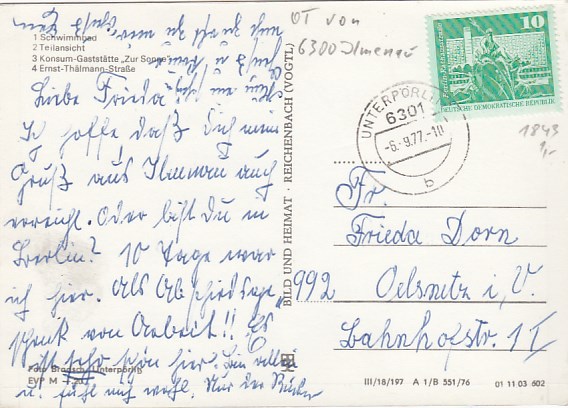 1 Schwimmbad
2 Teilansicht
3 Konsum-Gaststätte „Zur Sonne“
4 Ernst-Thälmann-Straße
Liebe Frieda!
Ich hoffe daß Dich mein
Gruß aus Ilmenau auch
erreicht. Oder bist Du in
Berlin? 10 Tage war
ich hier. Als Abschiedsge-
schenk von Arbeit!! Es
ist sehr schön hier.
u. fühl mich wohl. Nur der
Foto Brodsch, Unterpörlitz
EVP M –.20
BILD UND HEIMAT · REICHENBACH (VOGTL)
OT von
6300 Ilmenau
UNTERPÖRLITZ
6301
-6.-9.77.-10
b
10
Berlin, Rathausstraße
DEUTSCHE DEMOKRATISCHE REPUBLIK
1843
1,-
Fr.
Frieda Dorn
992 Oelsnitz i. V.
Bahnhofstr. 1 I
III/18/197 A 1/B 551/76 01 11 03 602